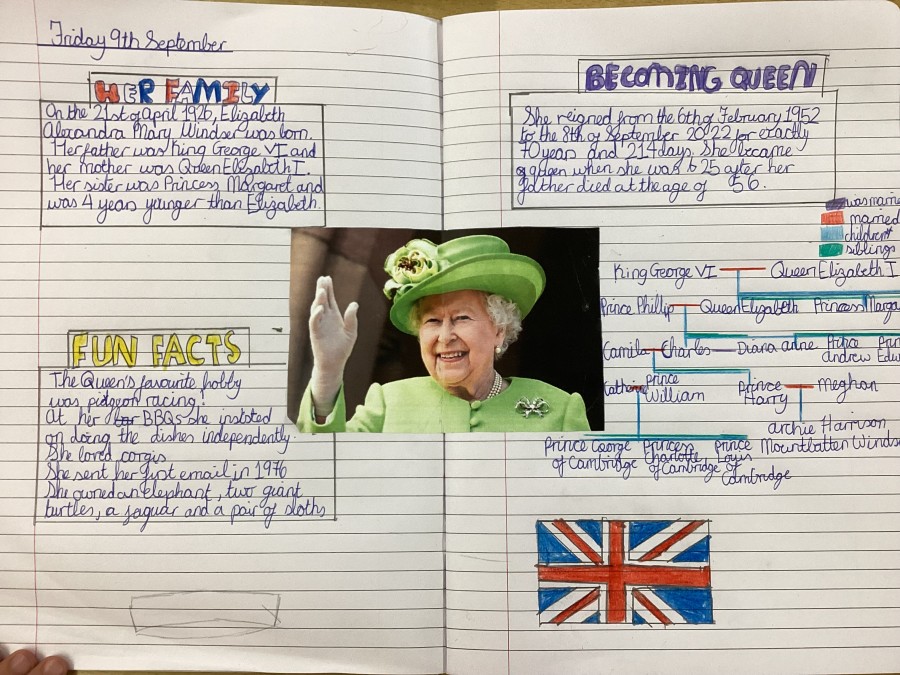 Friday 9th September
HER FAMILY
On the 21st of April 1926, Elizabeth
Alexandra Mary Windser was born.
Her father was King George VI and
her mother was Queen Elizabeth I.
Her sister was Princess Margaret and
was 4 years younger than Elizabeth.
FUN FACTS
The Queen's favourite hobby
was pidgeon racing!
At her BBQs she insisted
on doing the dishes independently.
She loved corgis
She sent her first email in 1976
She owned an elephant, two giant
turtles, a jaguar and a pair of sloths
BECOMING QUEEN!
She reigned from the 6th of February 1952
to the 8th of September 2022 for exactly
70 years and 214 days. She became
queen when she was 25 after her
father died at the age of 56.
was married
married
children
siblings
King George VI Queen Elizabeth I
Prince Phillip Queen Elizabeth Princess Marga
Camila Charles Diana anne Prince andrew Prin Edw
Catherine Prince William Prince Harry Meghan
archie Harrison
Mountbatten Winds
Prince George of Cambridge Princess Charlotte of Cambridge Prince Louis of Cambridge